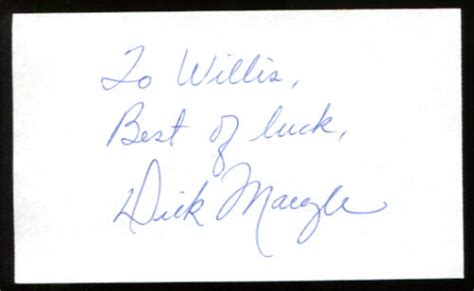 To Willis,
Best of luck,
Dick Maegle